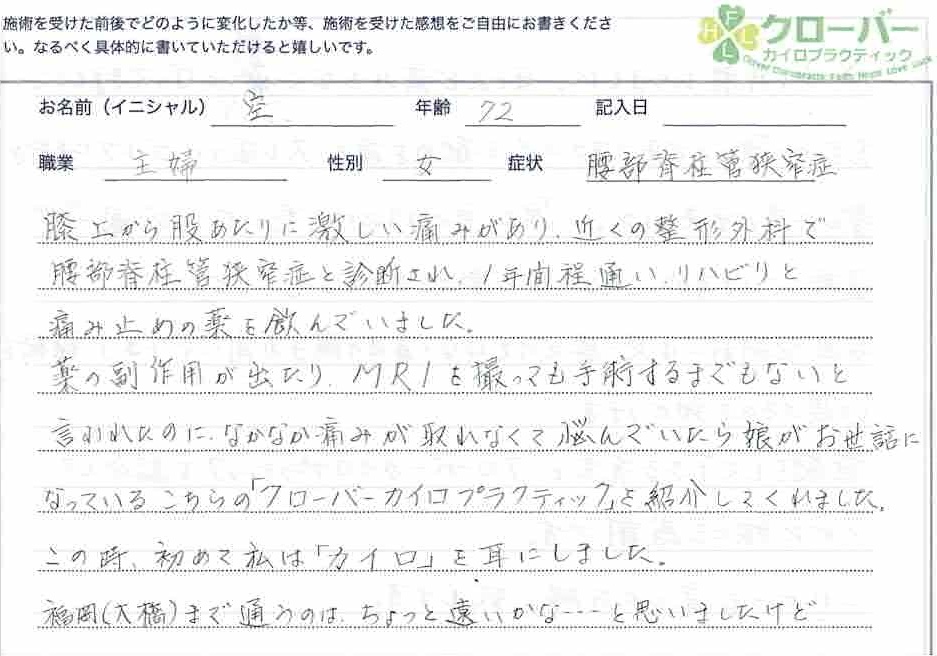 施術を受けた前後でどのように変化したか等、施術を受けた感想をご自由にお書きくださ
い。なるべく具体的に書いていただけると嬉しいです。
HFLL
クローバー
カイロプラクティック
Clover Chiropractic Faith Hope Love Luck
お名前（イニシャル） 室 年齢 72 記入日
職業 主婦 性別 女 症状 腰部脊柱管狭窄症
膝上から股あたりに激しい痛みがあり、近くの整形外科で
腰部脊柱管狭窄症と診断され、1年間程通い、リハビリと
痛み止めの薬を飲んでいました。
薬の副作用が出たり、MRIを撮っても手術するまでもないと
言われたのに、なかなか痛みが取れなくて悩んでいたら娘がお世話に
なっているこちらの「クローバーカイロプラクティック」を紹介してくれました。
この時、初めて私は「カイロ」を耳にしました。
福岡(大橋)まで通うのは、ちょっと遠いかな……と思いましたけど